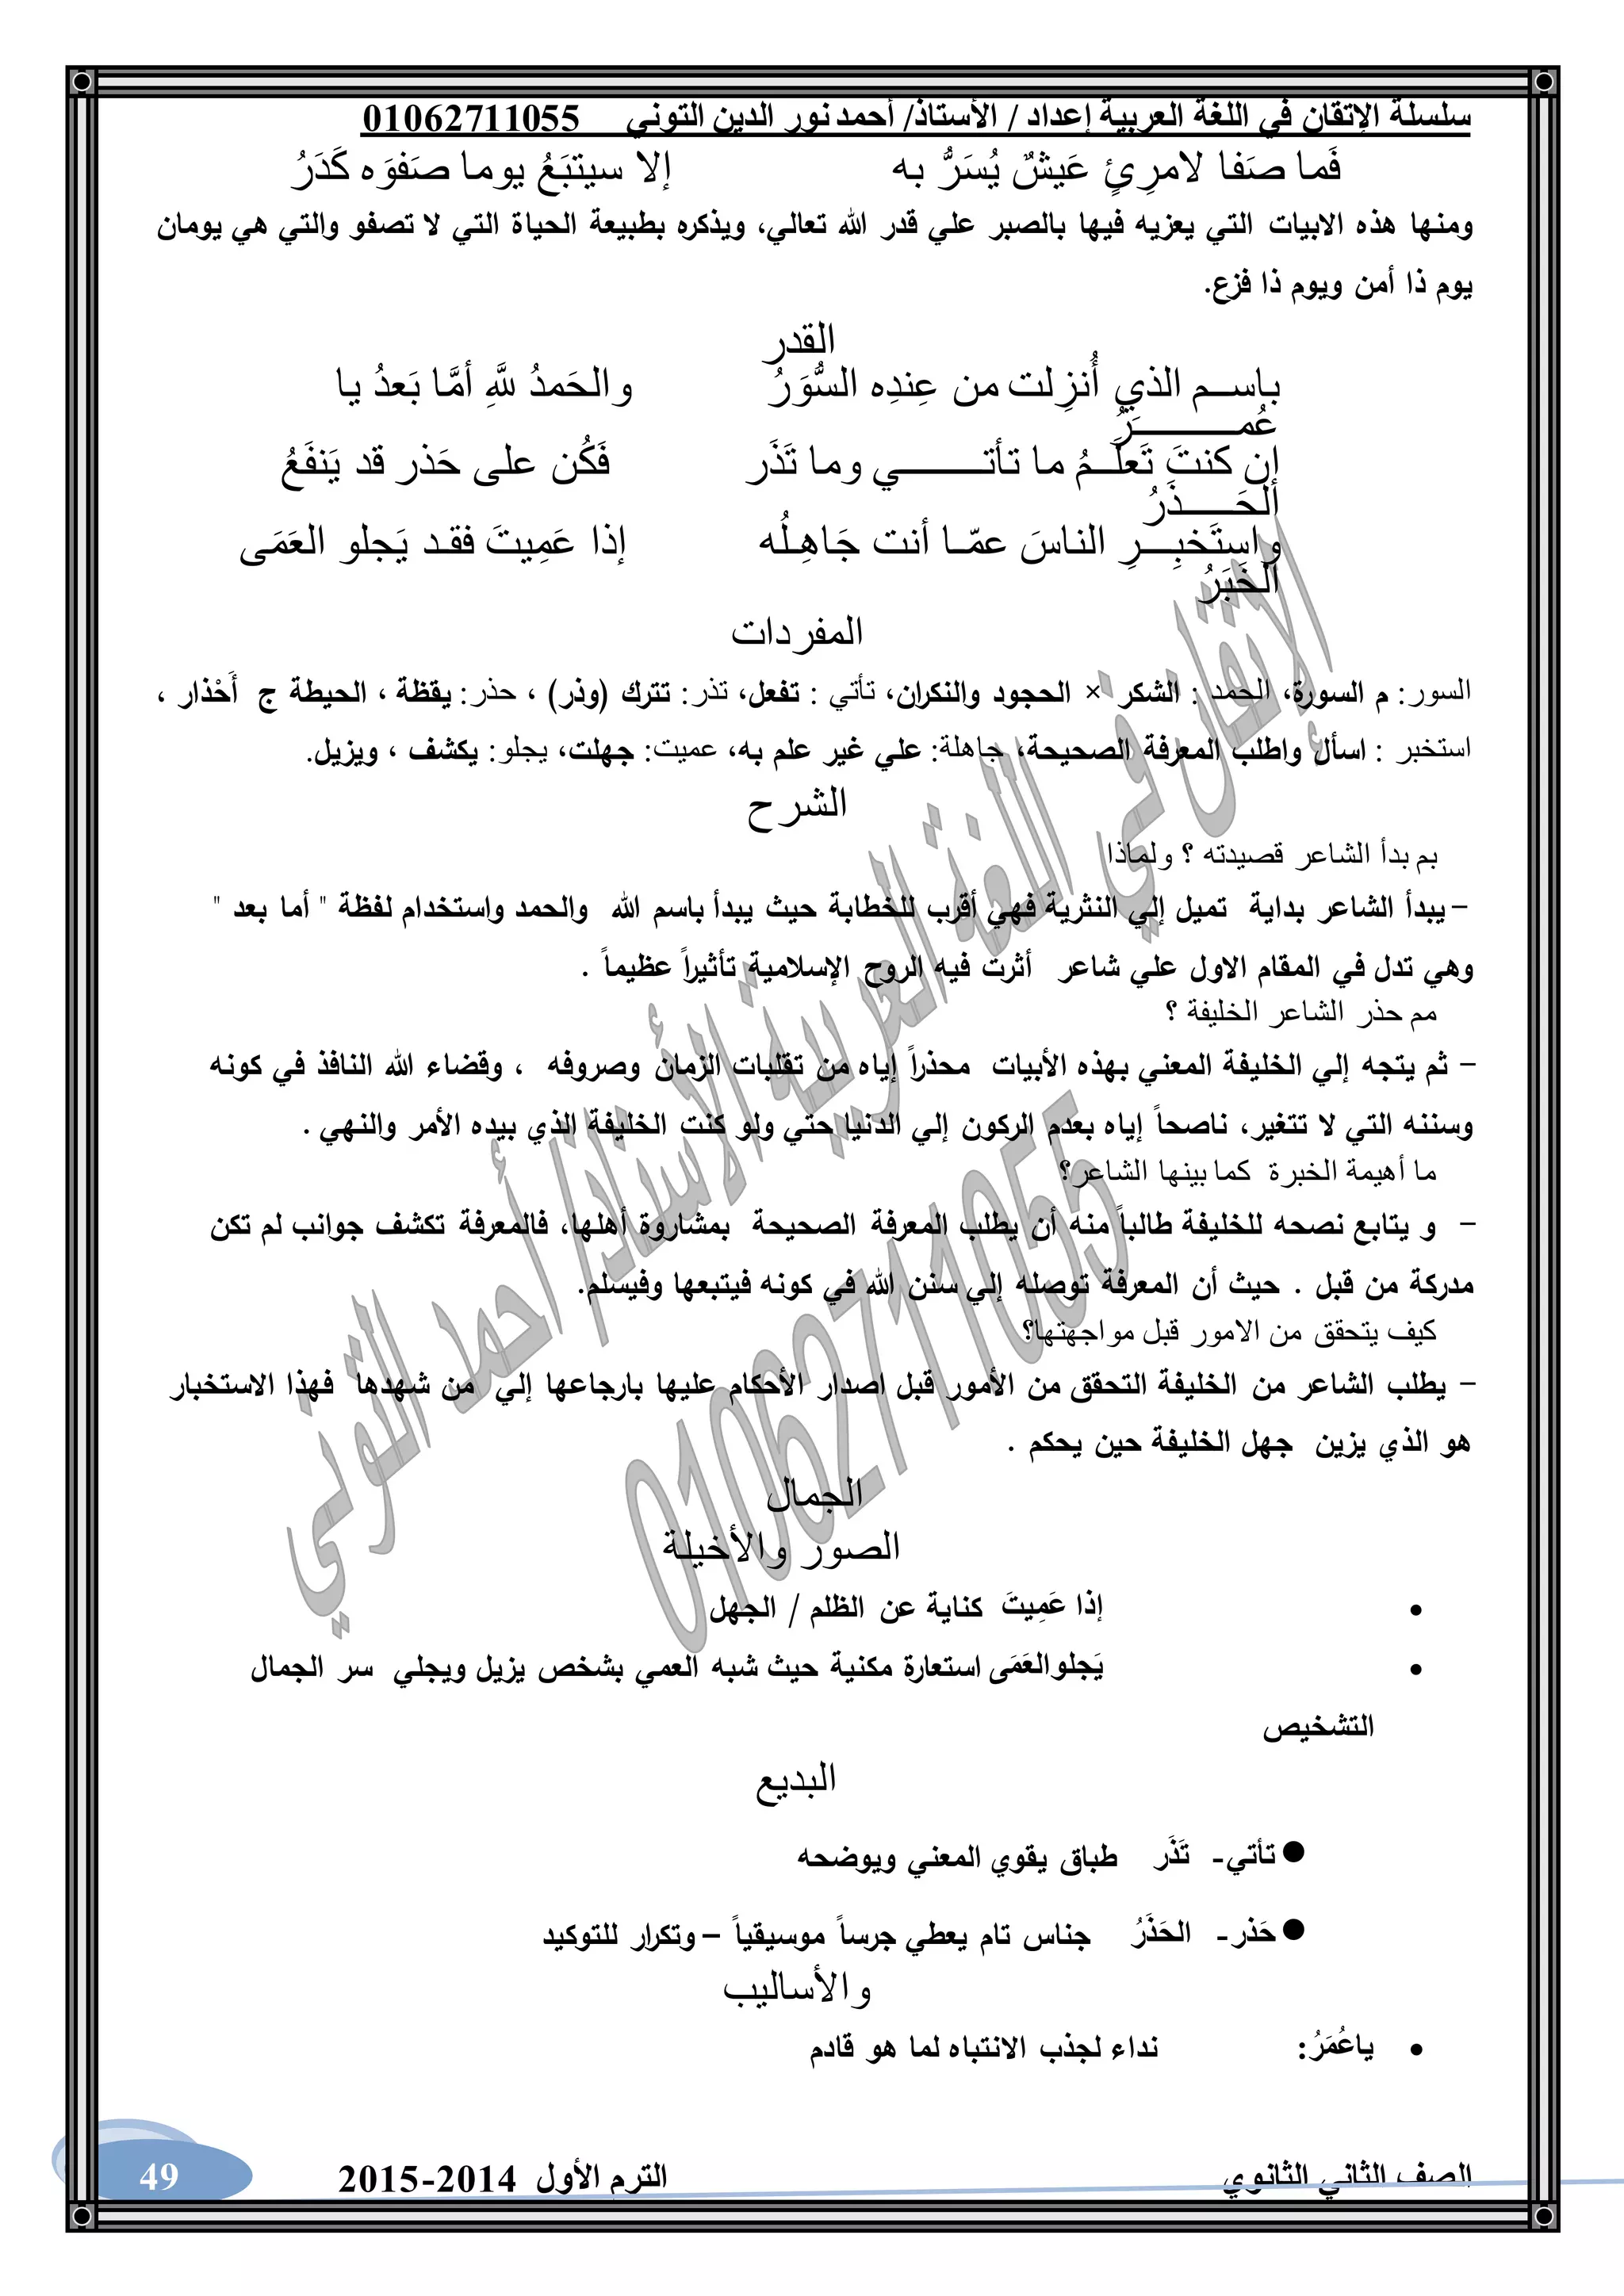 سلسلة الإتقان في اللغة العربية إعداد / الأستاذ/ أحمد نور الدين التوني 01062711055
فَما صَفا لامرِئٍ عَيشٌ يُسَرُّ به إلا سيتبَعُ يوما صَفوَه كَدَرُ
ومنها هذه الابيات التي يعزيه فيها بالصبر علي قدر الله تعالي، ويذكره بطبيعة الحياة التي لا تصفو والتي هي يومان
يوم ذا أمن ويوم ذا فزع.
القدر
باســم الذي أُنزِلت من عِندِه السُّوَرُ والحَمدُ للهِ أمَّا بَعدُ يا
عُمـــــــــرُ
إن كنتَ تَعلَــمُ ما تأتـــــــي وما تَذَر فَكُن على حَذر قد يَنفَعُ
الحَـــــذَرُ
واستَخبِـــرِ الناسَ عمّــا أنت جَاهِـلُه إذا عَمِيتَ فقـد يَجلو العَمَى
الخَبَرُ
المفردات
السور: م السورة، الحمد : الشكر × الجحود والنكران، تأتي : تفعل، تذر: تترك (وذر) ، حذر: يقظة ، الحيطة ج أَحْذار ،
استخبر : اسأل واطلب المعرفة الصحيحة، جاهلة: علي غير علم به، عميت: جهلت، يجلو: يكشف ، ويزيل.
الشرح
بم بدأ الشاعر قصيدته ؟ ولماذا
- يبدأ الشاعر بداية تميل إلي النثرية فهي أقرب للخطابة حيث يبدأ باسم الله والحمد واستخدام لفظة " أما بعد "
وهي تدل في المقام الاول علي شاعر أثرت فيه الروح الإسلامية تأثيراً عظيماً .
مم حذر الشاعر الخليفة ؟
- ثم يتجه إلي الخليفة المعني بهذه الأبيات محذراً إياه من تقلبات الزمان وصروفه ، وقضاء الله النافذ في كونه
وسننه التي لا تتغير، ناصحاً إياه بعدم الركون إلي الدنيا حتي ولو كنت الخليفة الذي بيده الأمر والنهي .
ما أهيمة الخبرة كما بينها الشاعر؟
- و يتابع نصحه للخليفة طالباً منه أن يطلب المعرفة الصحيحة بمشاروة أهلها، فالمعرفة تكشف جوانب لم تكن
مدركة من قبل . حيث أن المعرفة توصله إلي سنن الله في كونه فيتبعها وفيسلم.
كيف يتحقق من الامور قبل مواجهتها؟
- يطلب الشاعر من الخليفة التحقق من الأمور قبل اصدار الأحكام عليها بارجاعها إلي من شهدها فهذا الاستخبار
هو الذي يزين جهل الخليفة حين يحكم .
الجمال
الصور والأخيلة
• إذا عَمِيتَ كناية عن الظلم / الجهل
• يَجلوالعَمَى استعارة مكنية حيث شبه العمي بشخص يزيل ويجلي سر الجمال
التشخيص
البديع
● تأتي- تَذَر طباق يقوي المعني ويوضحه
● حَذر- الحَذَرُ جناس تام يعطي جرساً موسيقياً – وتكرار للتوكيد
والأساليب
• ياعُمَرُ: نداء لجذب الانتباه لما هو قادم
الصف الثاني الثانوي الترم الأول 2014-2015 49
الإتقان في اللغة العربية الأستاذ/ أحمد التوني
01062711055